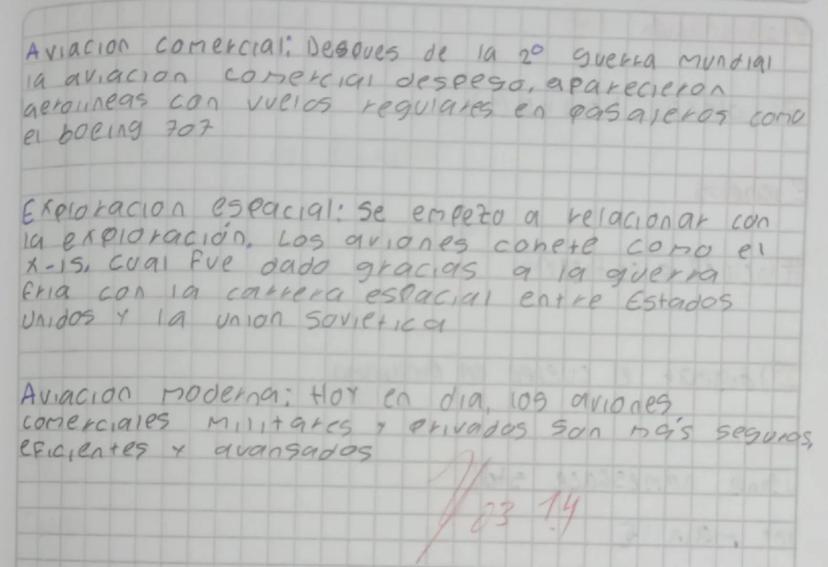 Aviacion comercial: Despues de la 2° guerra mundial
la aviacion comercial despego, aparecieron
aerolineas con vuelos regulares en pasajeros como
el boeing 707
Exploracion espacial: se empezo a relacionar con
la exploración. Los aviones cohete como el
x-15, cual fue dado gracias a la guerra
fria con la carrera espacial entre Estados
Unidos y la union sovietica
Aviacion moderna: Hoy en dia, los aviones
comerciales militares y privados son más seguros,
eficientes y avansados
03 14